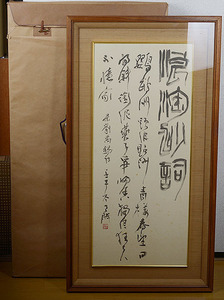 浪淘沙詞
鸚鵡洲頭浪颭沙青樓春望日
將斜銜泥燕子爭歸舍獨自狂夫
不憶家劉禹錫